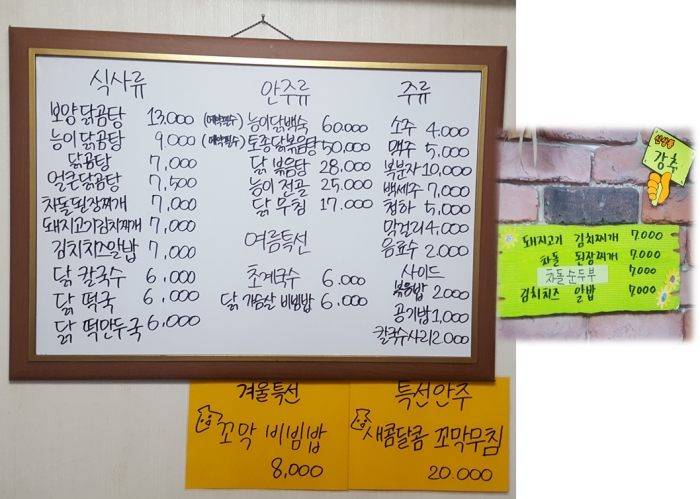 식사류
보양 닭곰탕 13.000
능이 닭곰탕 9.000
닭곰탕 7,000
얼큰닭곰탕 7,500
차돌된장찌개 7,000
돼지고기김치찌개 7,000
김치치즈알밥 7,000
닭 칼국수 6,000
닭 떡국 6,000
닭 떡만두국 6,000
안주류
(예약필수) 능이닭백숙 60.000
(예약필수) 토종닭볶음탕 50,000
닭 볶음탕 28,000
능이 전골 25,000
닭 무침 17.000
여름특선
초계국수 6.000
닭 가슴살 비빔밥 6,000
주류
소주 4.000
맥주 5,000
복분자 10,000
백세주 7,000
청하 5,000
막걸리 4,000
음료수 2.000
사이드
볶음밥 2000
공기밥 1,000
칼국수사리 2.000
겨울특선
꼬막 비빔밥
8,000
특선안주
새콤달콤 꼬막무침
20.000
신메뉴
강추
돼지고기 김치찌개 7.000
차돌 된장찌개 7.000
차돌순두부 7.000
김치치즈 알밥 7.000